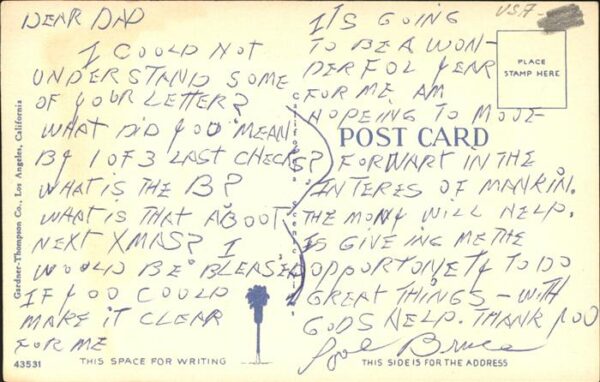 DEAR DAD
I COULD NOT
UNDERSTAND SOME
OF YOUR LETTER?
WHAT DID YOU MEAN
BY 1 OF 3 LAST CHECKS?
WHAT IS THE B?
WHAT IS THAT ABOUT
NEXT XMAS? I
WOULD BE BLEASED
IF YOU COULD
MAKE IT CLEAR
FOR ME
ITS GOING
TO BE A WON-
DERFUL YEAR
FOR ME AM
HOPEING TO MOVE
FORWART IN THE
INTERES OF MANKIN.
THE MONY WILL HELP.
IS GIVEING ME THE
OPPORTONETY TO DO
GREAT THINGS - WITH
GODS HELP. THANK YOU
Bruce
USA-
PLACE
STAMP HERE
POST CARD
Gardner-Thompson Co., Los Angeles, California
43531
THIS SPACE FOR WRITING
THIS SIDE IS FOR THE ADDRESS